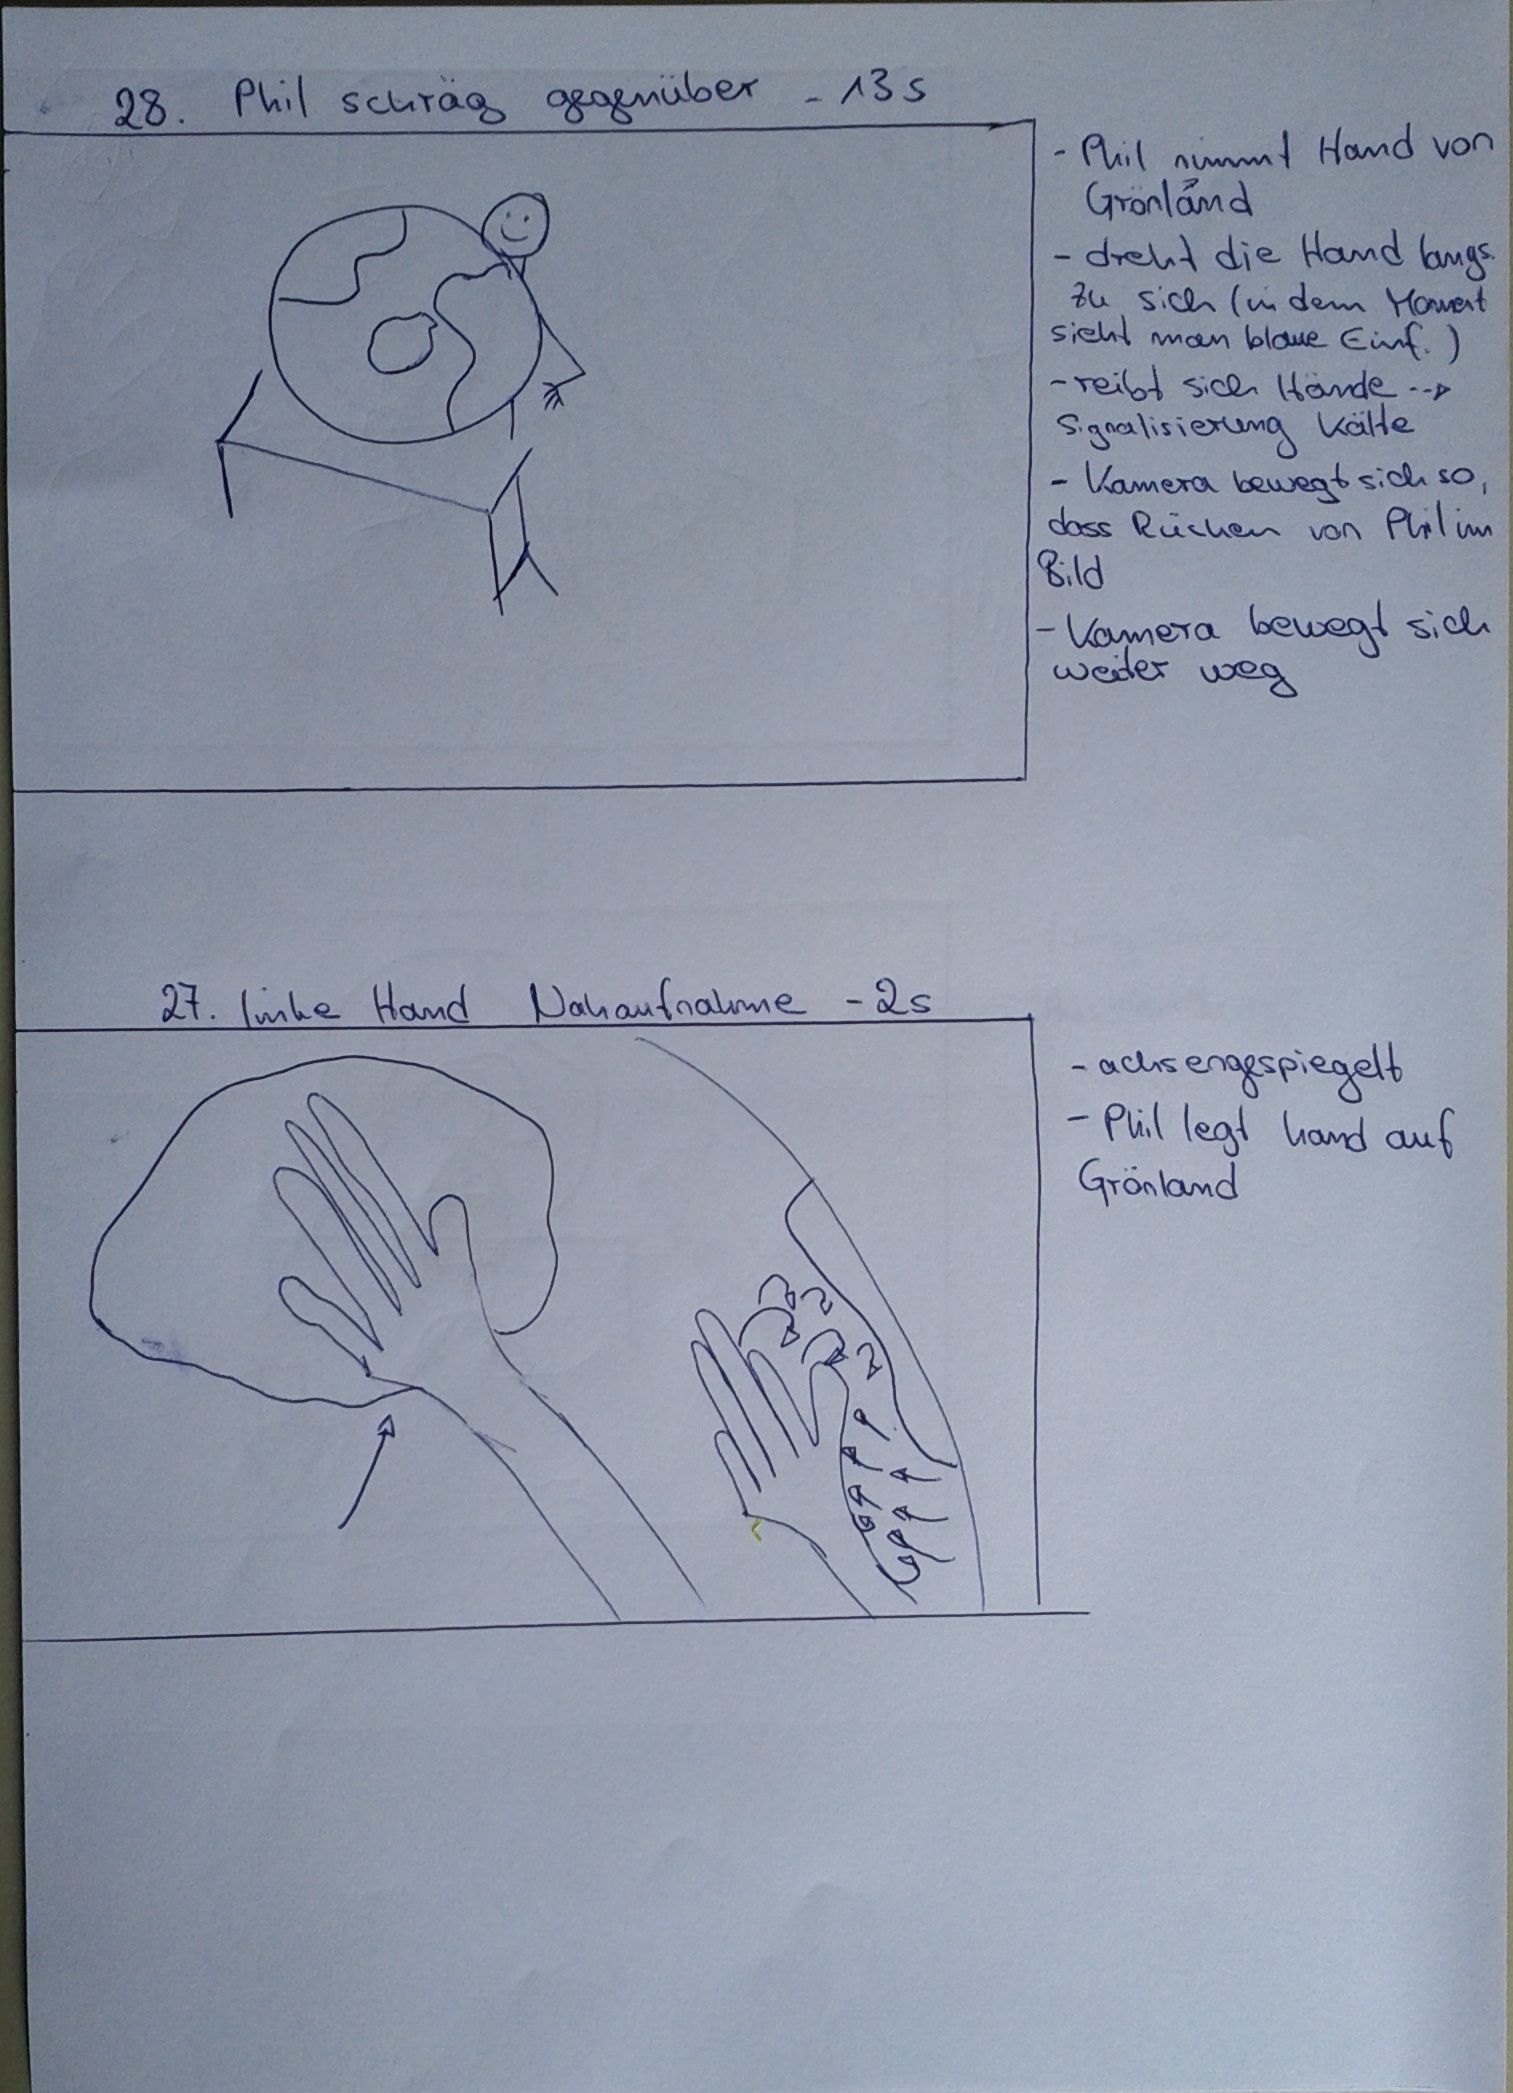 28. Phil schräg gegenüber - 13s
- Phil nimmt Hand von
Grönland
- dreht die Hand langs.
zu sich (in dem Moment
sieht man blaue Einf.)
- reibt sich Hände -->
Signalisierung Kälte
- Kamera bewegt sich so,
dass Rücken von Phil im
Bild
- Kamera bewegt sich
weiter weg
27. linke Hand Nahaufnahme - 2s
- achsengespiegelt
- Phil legt hand auf
Grönland